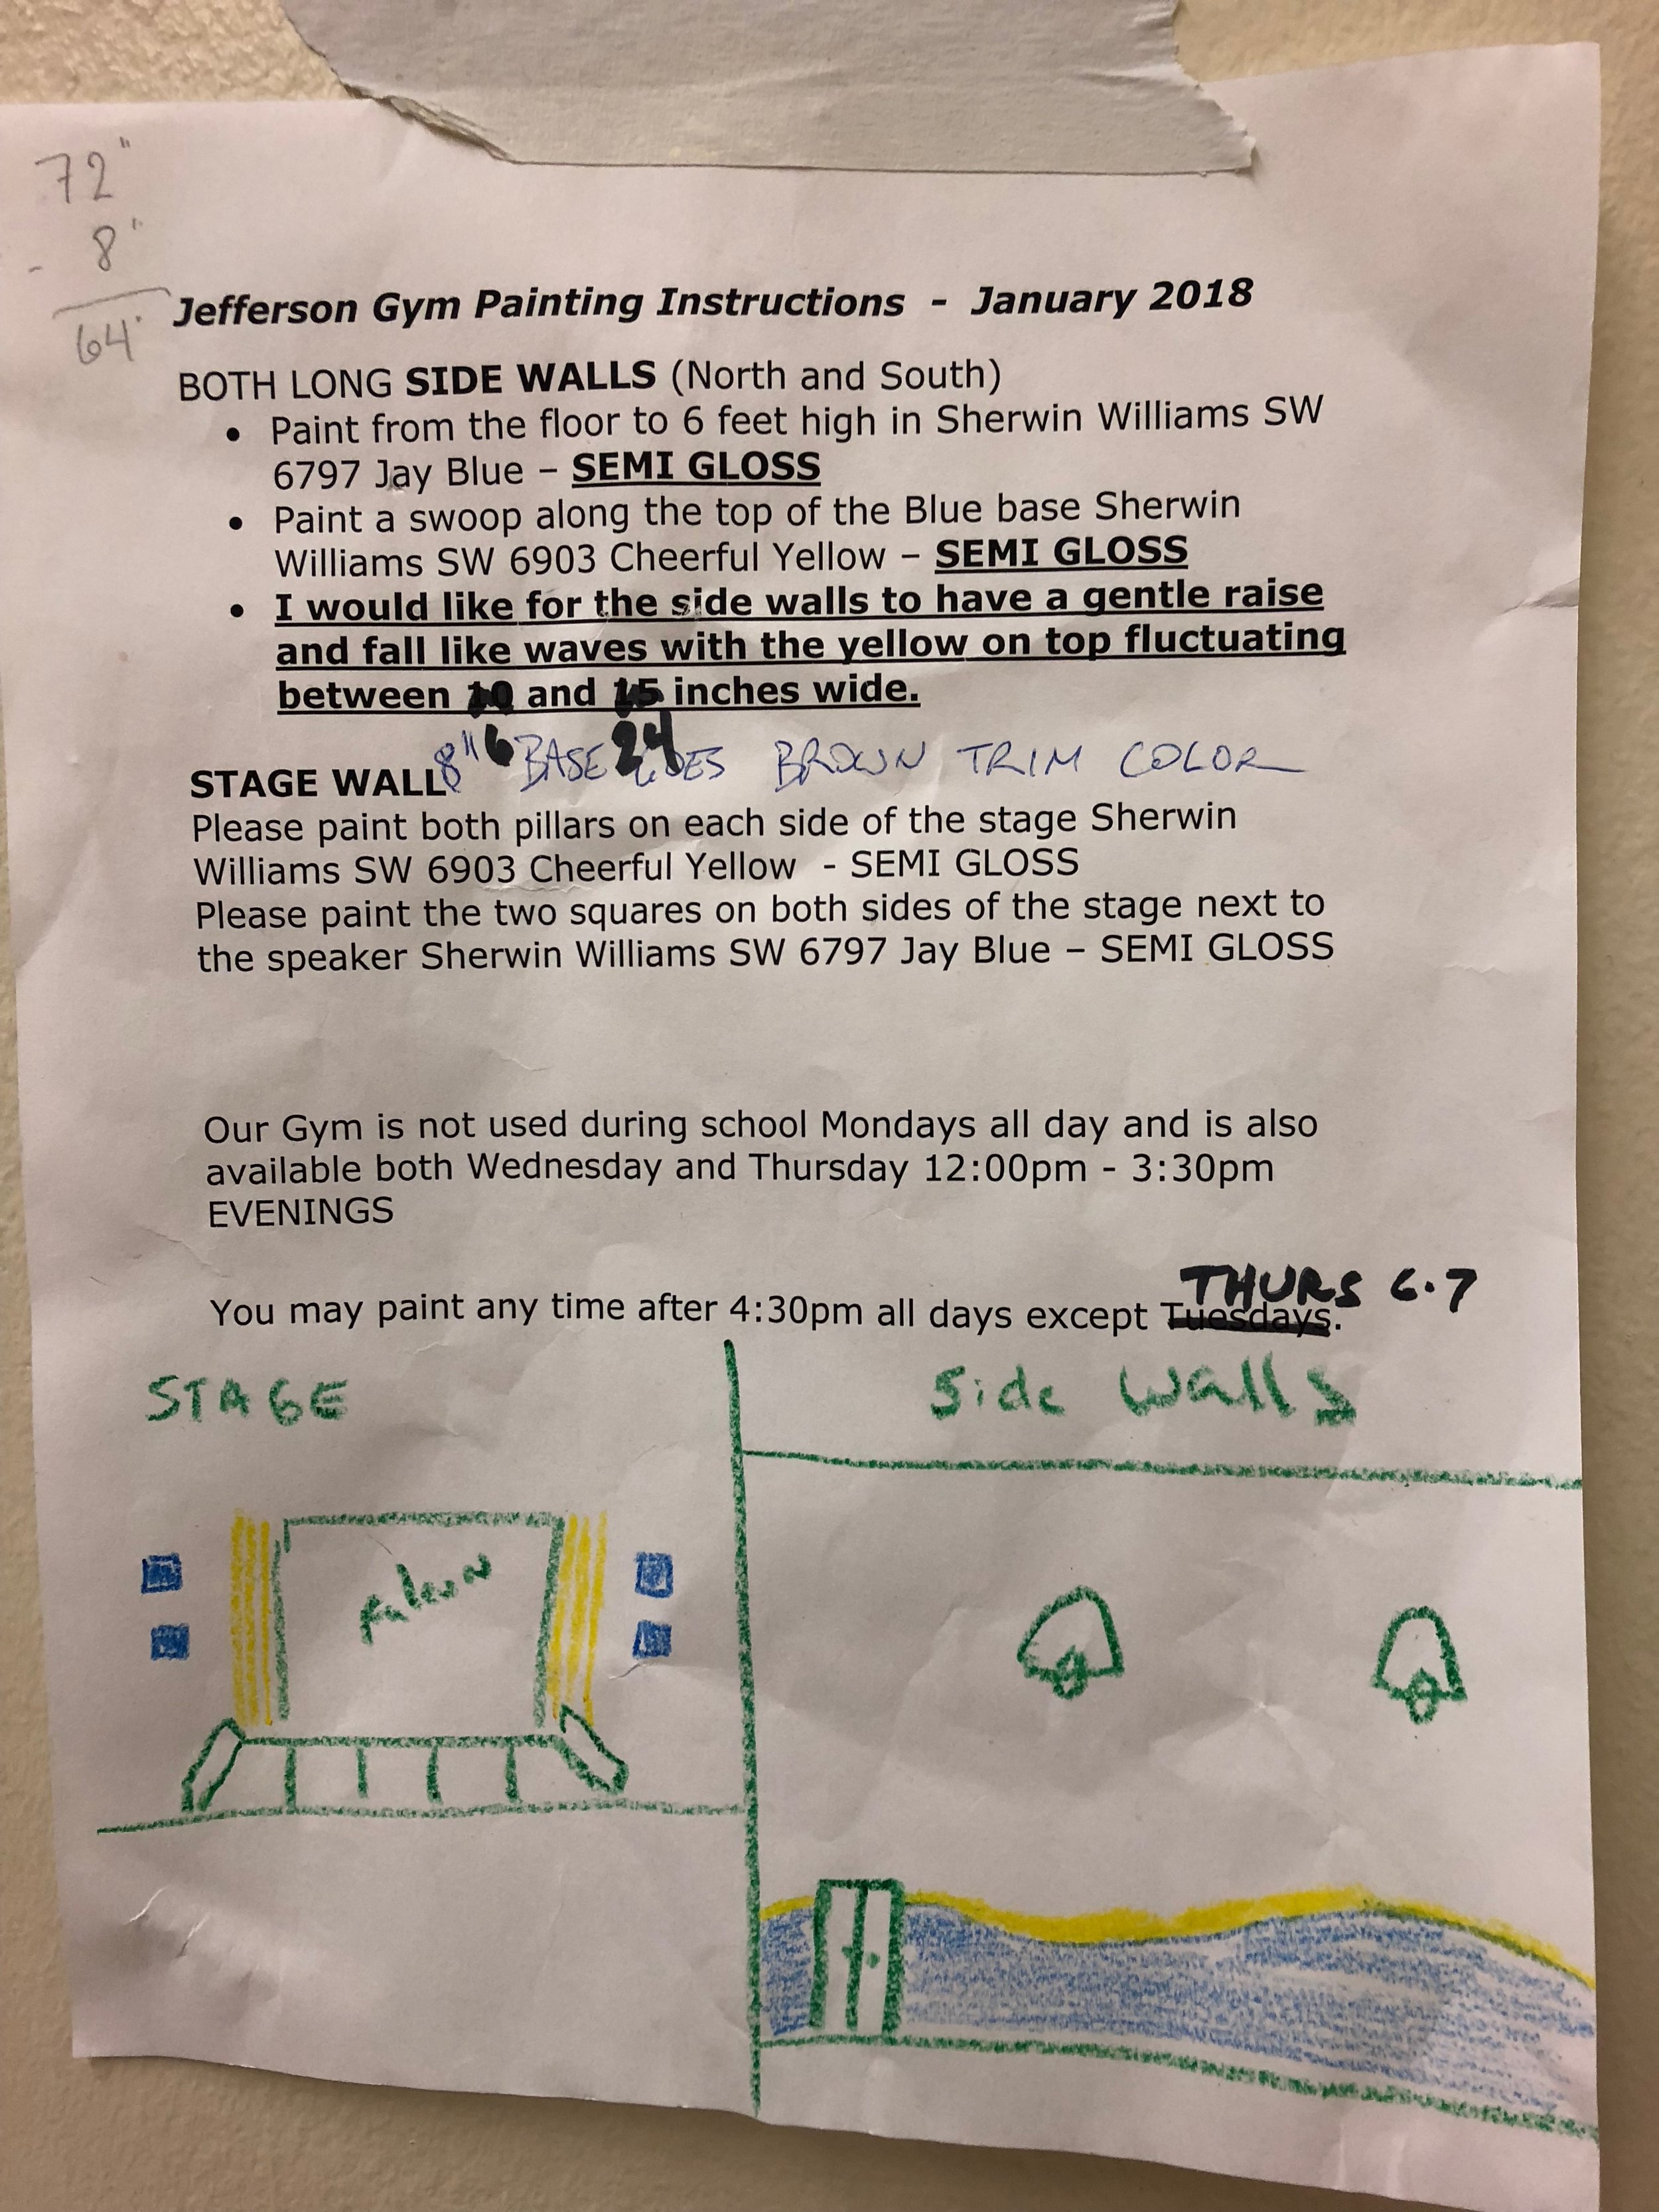 72"
- 8"
64"
Jefferson Gym Painting Instructions - January 2018
BOTH LONG SIDE WALLS (North and South)
• Paint from the floor to 6 feet high in Sherwin Williams SW
6797 Jay Blue – SEMI GLOSS
• Paint a swoop along the top of the Blue base Sherwin
Williams SW 6903 Cheerful Yellow – SEMI GLOSS
• I would like for the side walls to have a gentle raise
and fall like waves with the yellow on top fluctuating
between 10 and 15 inches wide.
6 24
8" BASE GOES BROWN TRIM COLOR
STAGE WALL
Please paint both pillars on each side of the stage Sherwin
Williams SW 6903 Cheerful Yellow - SEMI GLOSS
Please paint the two squares on both sides of the stage next to
the speaker Sherwin Williams SW 6797 Jay Blue – SEMI GLOSS
Our Gym is not used during school Mondays all day and is also
available both Wednesday and Thursday 12:00pm - 3:30pm
EVENINGS
THURS 6-7
You may paint any time after 4:30pm all days except Tuesdays.
STAGE
Side Walls